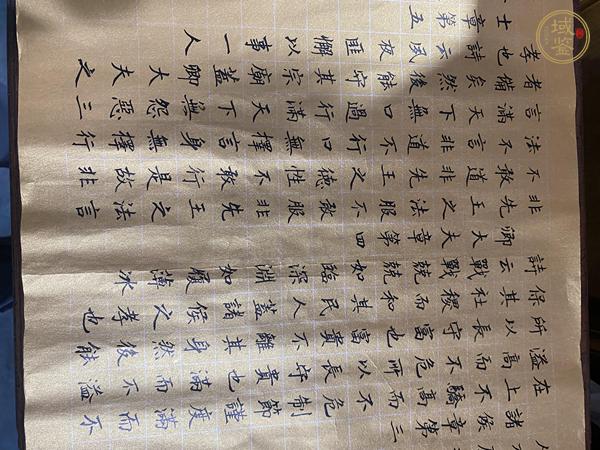 諸侯章第三
在上不驕高而不危制節謹度滿而不
溢高而不危所以長守貴也滿而不溢
所以長守富也富貴不離其身然後能
保其社稷而和其民人蓋諸侯之孝也
詩云戰戰兢兢如臨深淵如履薄冰
卿大夫章第四
非先王之法服不敢服非先王之法言
不敢道非先王之德行不敢行是故非
法不言非道不行口無擇言身無擇行
言滿天下無口過行滿天下無怨惡三
者備矣然後能守其宗廟蓋卿大夫之
孝也詩云夙夜匪懈以事一人
士章第五
域鉴